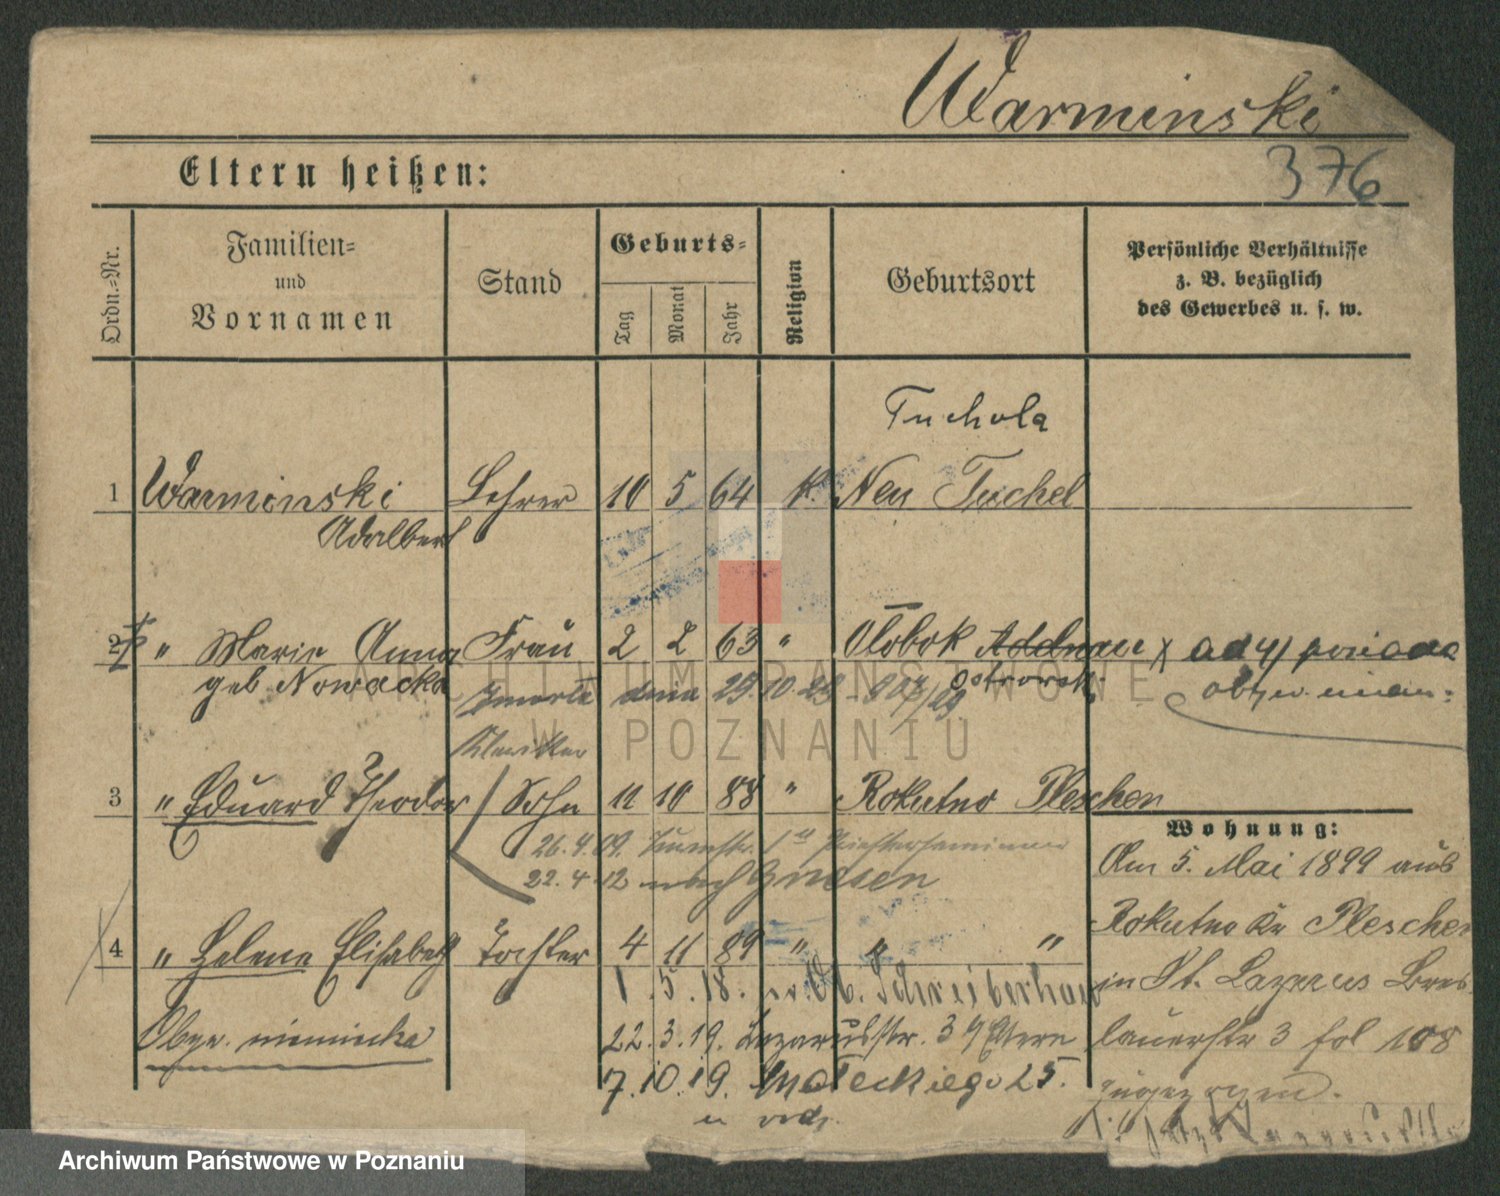 Warminski
376
Eltern heißen:
Ordn.-Nr.
Familien- und Vornamen
Stand
Geburts-
Tag
Monat
Jahr
Religion
Geburtsort
Persönliche Verhältnisse
z. B. bezüglich
des Gewerbes u. s. w.
Tuchola
1 Warminski Lehrer 10 5 64 k. Neu Tuchel
Adalbert
2 " Marie Anna Frau 2 2 63 " Ołobok Adelnau x
geb Nowacka
Ostrowski
zmarła dnia 29.10.23
obyw. niem.
3 " Eduard Theodor Sohn 11 10 88 " Rokutno Pleschen
26.4.09.
22.4.12 nach Gnesen
Wohnung:
Am 5. Mai 1899 aus
Rokutno Kr Pleschen
in St. Lazarus Bres
lauerstr 3 fol 108
zugezogen.
4 " Helene Elisabeth Tochter 4 11 89 " " "
1.5.18. Schreiberhau
Obyw. niemiecka
22.3.19. Lazarusstr. 3 Eltern
7.10.19. Małeckiego 25.
ARCHIWUM PAŃSTWOWE
W POZNANIU
Archiwum Państwowe w Poznaniu